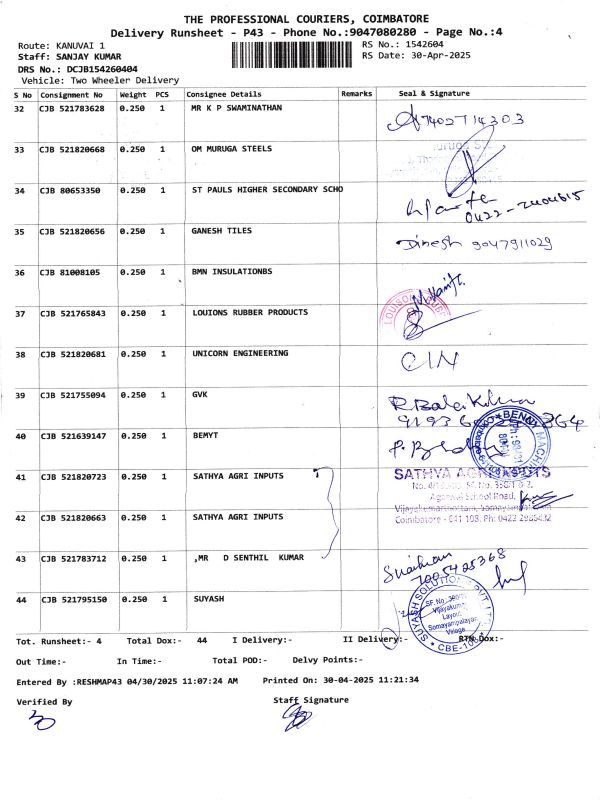 THE PROFESSIONAL COURIERS, COIMBATORE
Delivery Runsheet - P43 - Phone No.:9047080280 - Page No.:4
Route: KANUVAI 1 RS No.: 1542604
Staff: SANJAY KUMAR RS Date: 30-Apr-2025
DRS No.: DCJB154260404
Vehicle: Two Wheeler Delivery
S No Consignment No Weight PCS Consignee Details Remarks Seal & Signature
32 CJB 521783628 0.250 1 MR K P SWAMINATHAN 7402714303
33 CJB 521820668 0.250 1 OM MURUGA STEELS
34 CJB 80653350 0.250 1 ST PAULS HIGHER SECONDARY SCHO
0422-
35 CJB 521820656 0.250 1 GANESH TILES Dinesh 9047911029
36 CJB 81008105 0.250 1 BMN INSULATIONBS
37 CJB 521765843 0.250 1 LOUIONS RUBBER PRODUCTS
38 CJB 521820681 0.250 1 UNICORN ENGINEERING
39 CJB 521755094 0.250 1 GVK
40 CJB 521639147 0.250 1 BEMYT
41 CJB 521820723 0.250 1 SATHYA AGRI INPUTS SATHYA AGRI INPUTS
Agarwal School Road,
42 CJB 521820663 0.250 1 SATHYA AGRI INPUTS
Coimbatore - 641 108. Ph: 0422 2965432
43 CJB 521783712 0.250 1 ,MR D SENTHIL KUMAR
44 CJB 521795150 0.250 1 SUYASH
SUYASH SOLUTIONS PVT LTD
Vijayakumar
Layout,
Somayampalayam
Village
CBE-108
Tot. Runsheet:- 4 Total Dox:- 44 I Delivery:- II Delivery:- RTN Dox:-
Out Time:- In Time:- Total POD:- Delvy Points:-
Entered By :RESHMAP43 04/30/2025 11:07:24 AM Printed On: 30-04-2025 11:21:34
Verified By Staff Signature